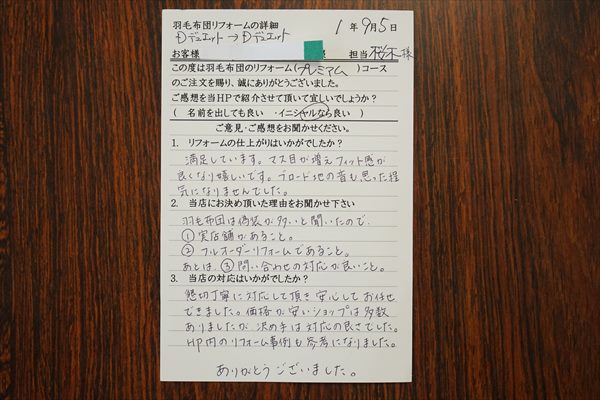 羽毛布団リフォームの詳細 1年9月5日
Dデュエット→Dデュエット
お客様 様 担当 桜木 様
この度は羽毛布団のリフォーム(プレミアム)コース
のご注文を賜り、誠にありがとうございました。
ご感想を当HPで紹介させて頂いて宜しいでしょうか？
( 名前を出しても良い ・イニシャルなら良い )
ご意見・ご感想をお聞かせください。
1. リフォームの仕上がりはいかがでしたか？
満足しています。マス目が増えフィット感が
良くなり嬉しいです。ブロード地の音も思った程
気になりませんでした。
2. 当店にお決め頂いた理由をお聞かせ下さい
羽毛布団は偽装が多いと聞いたので、
①実店舗があること。
②フルオーダーリフォームであること。
あとは、③問い合わせの対応が良いこと。
3. 当店の対応はいかがでしたか？
懇切丁寧に対応して頂き安心してお任せ
できました。価格が安いショップは多数
ありましたが決め手は対応の良さでした。
HP内のリフォーム事例も参考になりました。
ありがとうございました。